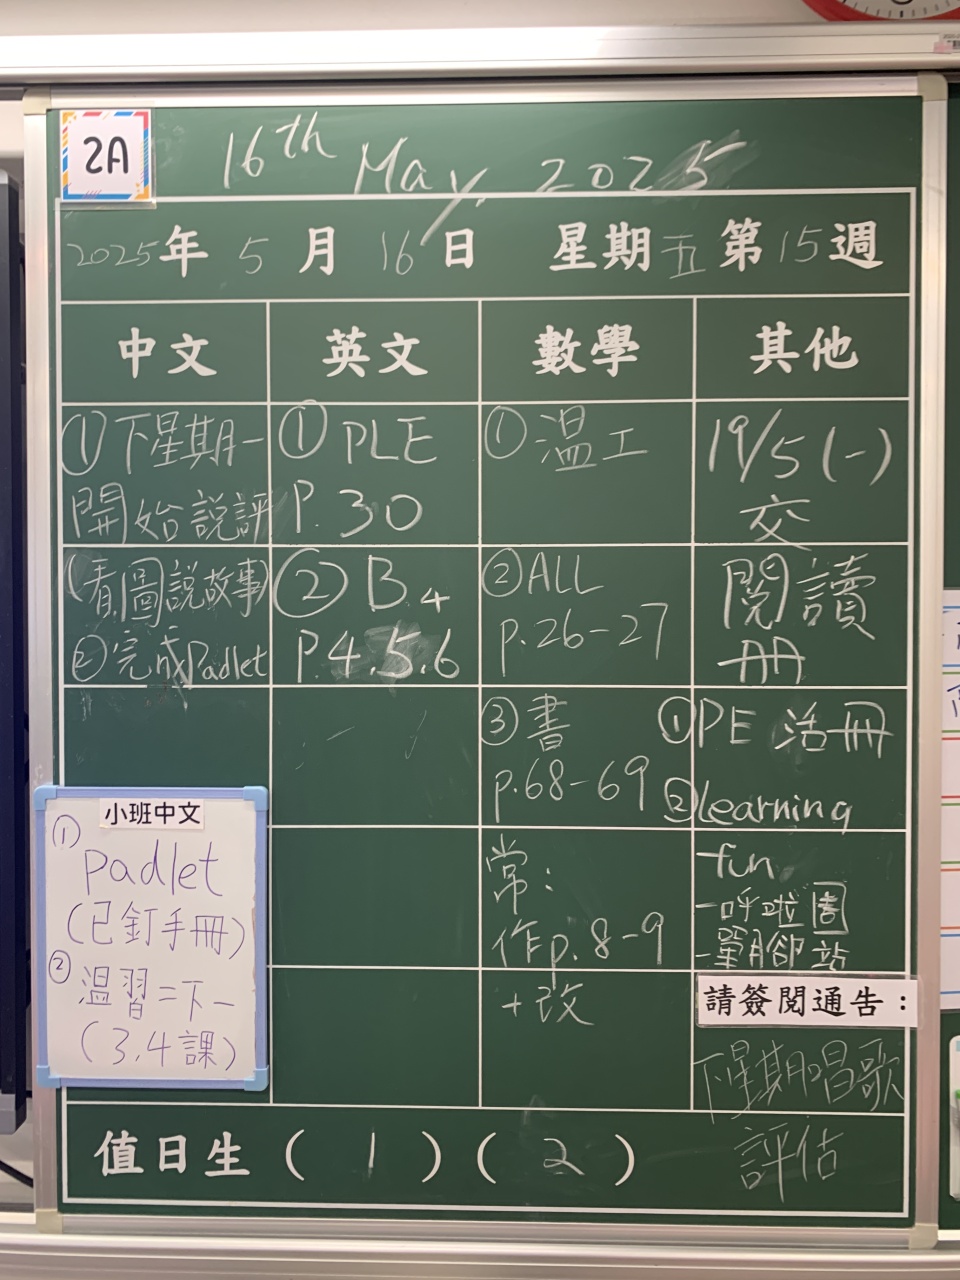 2A
16th May, 2025
2025年 5 月 16 日 星期五 第15週
中文
英文
數學
其他
① 下星期一
開始說評
(看圖說故事)
② 完成Padlet
① PLE
P. 30
② B4
P.4.5.6
① 溫工
② ALL
p.26-27
③ 書
p.68-69
常:
作p.8-9
+改
19/5 (一)
交
閱讀
冊
① PE 活冊
② Learning
fun
-呼啦圈
-單腳站
請簽閱通告：
下星期唱歌
評估
小班中文
① padlet
(已釘手冊)
② 溫習二下一
(3,4課)
值日生 ( 1 ) ( 2 )